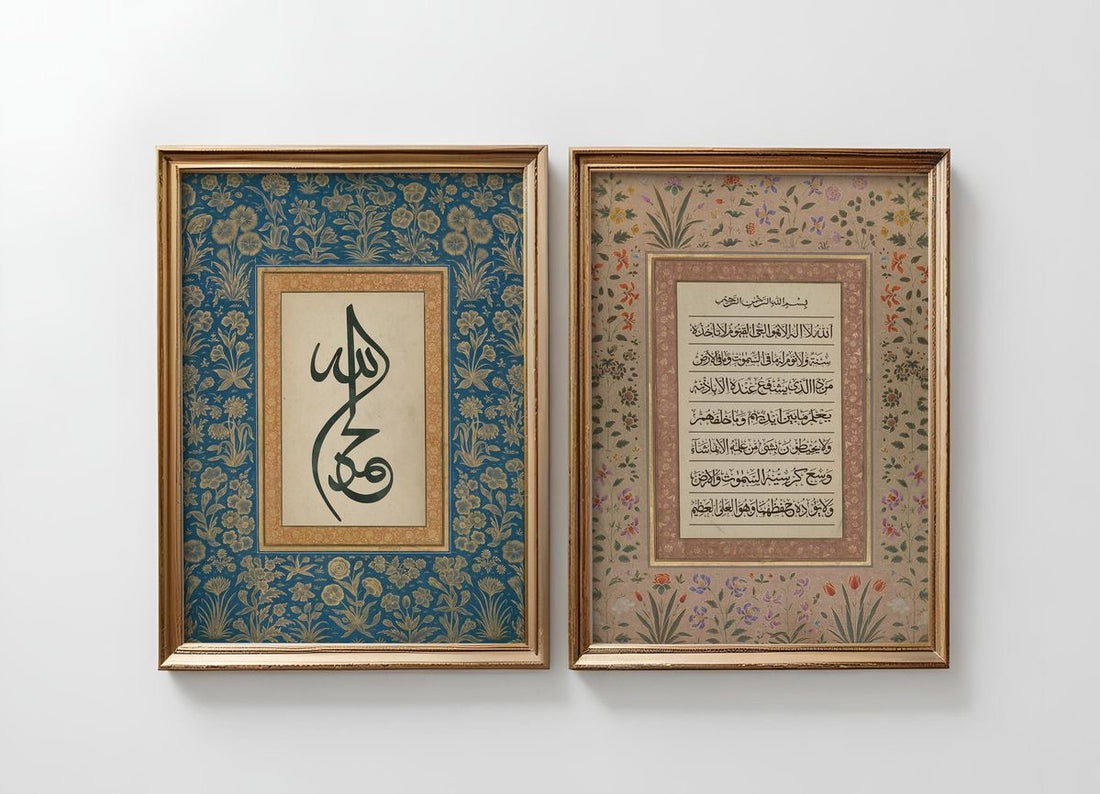 الحمد لله
بسم الله الرحمن الرحيم
الله لا اله الا هو الحي القيوم لا تاخذه
سنة ولا نوم له ما في السموت وما في الارض
من ذا الذي يشفع عنده الا باذنه
يعلم ما بين ايديهم وما خلفهم
ولا يحيطون بشئ من علمه الا بما شاء
وسع كرسيه السموت والارض
ولا يؤده حفظهما وهو العلي العظيم